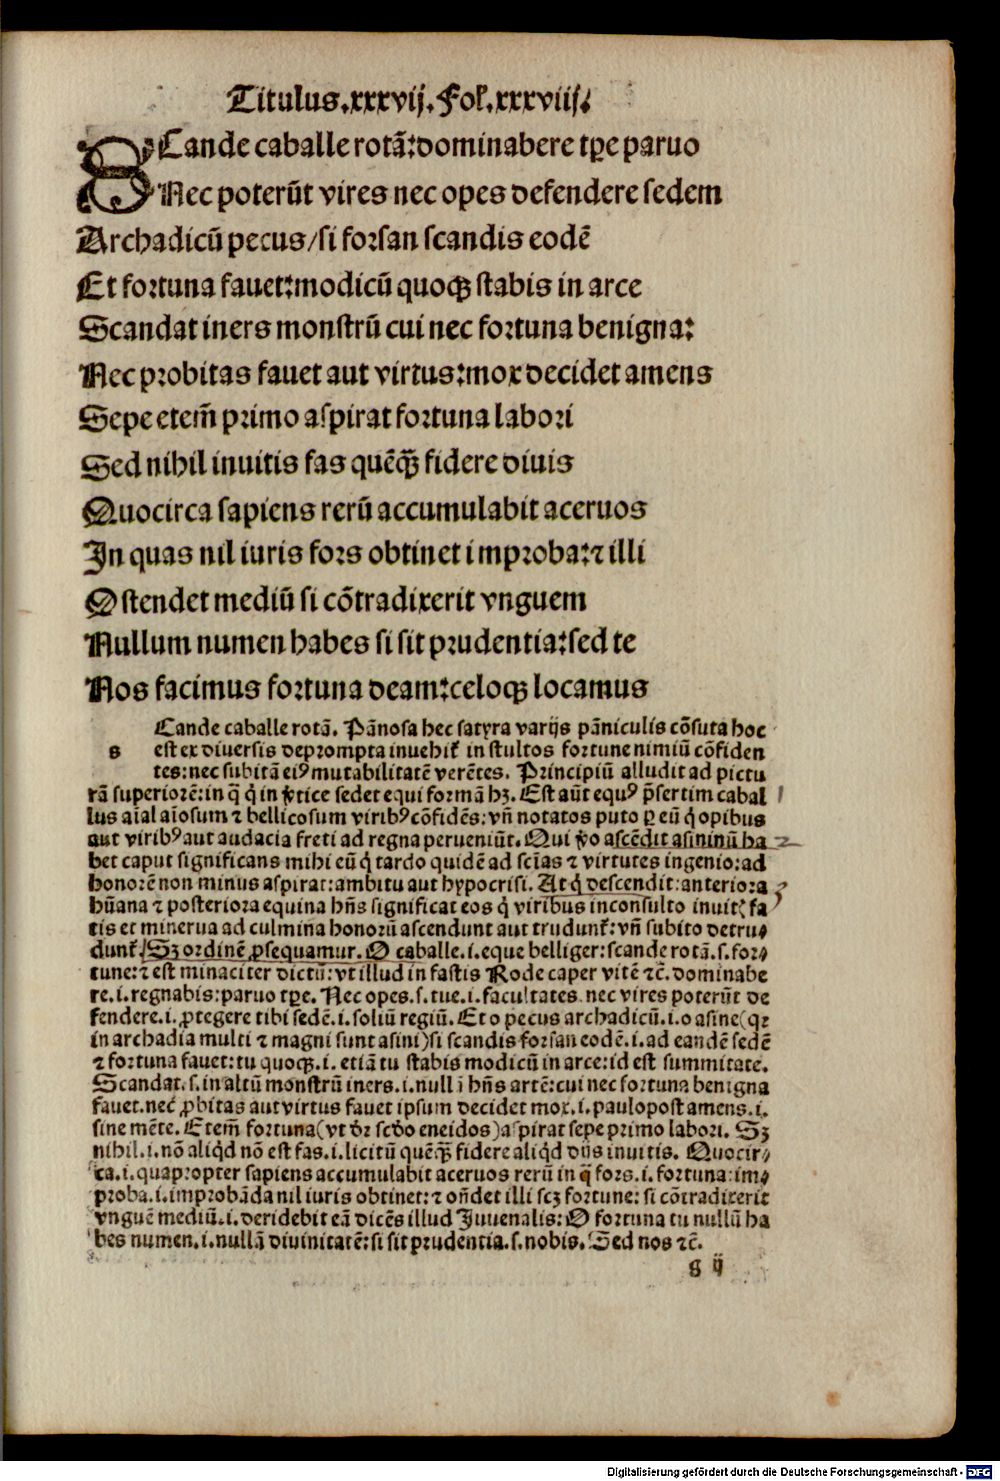 Titulus.xxxvij.Fol.xxxviij.
SCande caballe rotã:dominabere tꝑe paruo
Nec poterũt vires nec opes defendere sedem
Archadicũ pecus/si forsan scandis eodẽ
Et fortuna fauet:modicũ quoqꝫ stabis in arce
Scandat iners monstrũ cui nec fortuna benigna:
Nec probitas fauet aut virtus:mox decidet amens
Sepe etem̃ primo aspirat fortuna labori
Sed nihil inuitis fas quẽqꝫ̃ fidere diuis
Quocirca sapiens rerũ accumulabit aceruos
In quas nil iuris fors obtinet improba:⁊ illi
Ostendet mediũ si cõtradixerit vnguem
Nullum numen habes si sit prudentia:sed te
Nos facimus fortuna deam:celoqꝫ locamus
Cande caballe rotã. Pãnosa hec satyra varijs pãniculis cõsuta hoc
s est ex diuersis deprompta inuehit᷑ in stultos fortune nimiũ cõfiden
tes:nec subitã eiꝰ mutabilitatẽ verẽtes. Principiũ alludit ad pictu
rã superiorẽ:in q̃ q̇ in ꝟtice sedet equi formã hꝫ. Est aũt equꝰ p̃sertim cabal
lus aĩal aĩosum ⁊ bellicosum viribꝰ cõfidẽs: vñ notatos puto ꝑ eũ q̇ opibus
aut viribꝰ aut audacia freti ad regna perueniũt. Qui ꝟo ascẽdit asininũ ha
bet caput significans mihi eũ q̇ tardo quidẽ ad scĩas ⁊ virtutes ingenio:ad
honorẽ non minus aspirat:ambitu aut hypocrisi. At q̇ descendit:anteriora
hũana ⁊ posteriora equina hñs significat eos q̇ viribus inconsulto inuitꝭ fa
tis et minerua ad culmina honorũ ascendunt aut trudunt᷑: vñ subito detru-
dunt᷑. Sꝫ ordinẽ ꝓsequamur. O caballe.i.eque belliger:scande rotã.s.for-
tune:⁊ est minaciter dictũ: vt illud in fastis Rode caper vitẽ ⁊c̃. dominabe
re.i.regnabis:paruo tꝑe. Nec opes.s.tue.i.facultates nec vires poterũt de
fendere.i.ꝓtegere tibi sedẽ.i.soliũ regiũ. Et o pecus archadicũ.i.o asine(qꝛ
in archadia multi ⁊ magni sunt asini)si scandis forsan eodẽ.i.ad eandẽ sedẽ
⁊ fortuna fauet: tu quoqꝫ.i.etiã tu stabis modicũ in arce:id est summitate.
Scandat.s.in altũ monstrũ iners.i.nullã hñs artẽ:cui nec fortuna benigna
fauet.nec ꝓbitas aut virtus fauet ipsum decidet mox.i.paulopost amens.i.
sine mẽte. Etem̃ fortuna(vt dr̃ scdo eneidos)aspirat sepe primo labori. Sꝫ
nihil.i.nõ aliqd nõ est fas.i.licitũ quẽqꝫ̃ fidere aliqd dijs inuitis. Quocir-
ca.i.quapropter sapiens accumulabit aceruos rerũ in q̃s fors.i.fortuna:im-
proba.i.improbãda nil iuris obtinet:⁊ oñdet illi scꝫ fortune: si cõtradixerit
vnguẽ mediũ.i.deridebit eã dicẽs illud Juuenalis:O fortuna tu nullũ ha
bes numen.i.nullã diuinitatẽ:si sit prudentia.s.nobis. Sed nos ⁊c̃.
g ij
Digitalisierung gefördert durch die Deutsche Forschungsgemeinschaft - DFG